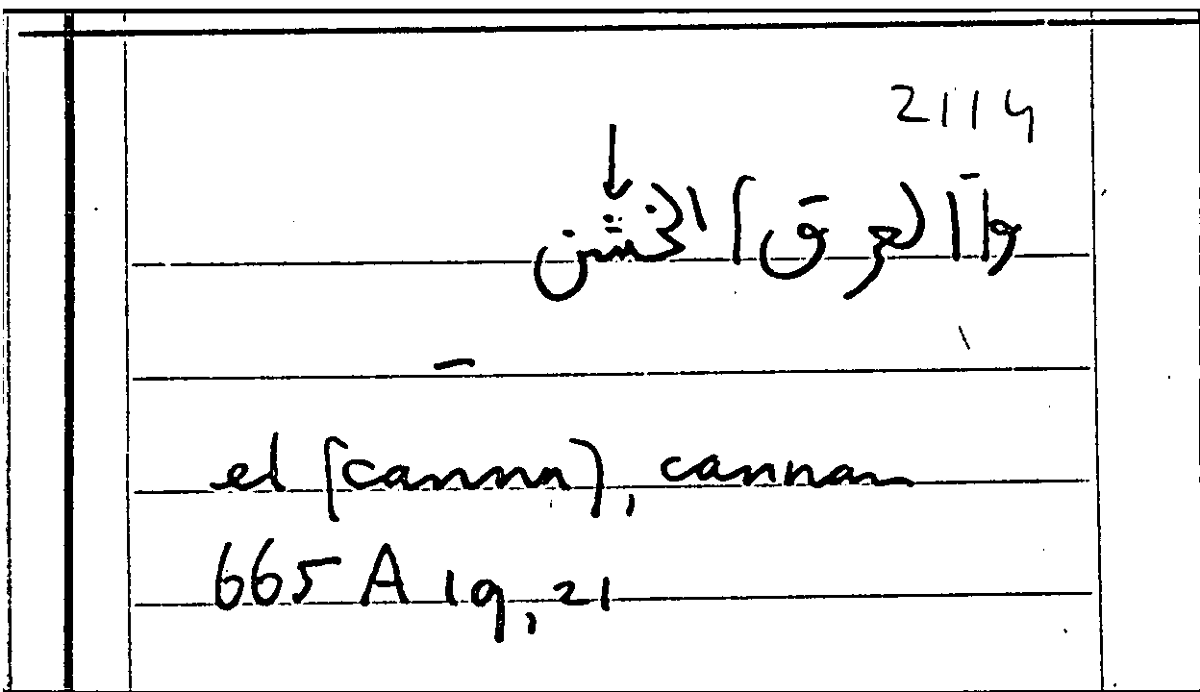 2114
↓
و[العرق] الخشن
—
el [canna], cannam
665 A 19, 21